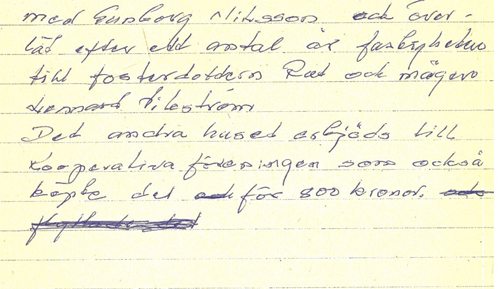 med Gunborg Nilsson och över-
lät efter ett antal år fastigheten
till fosterdottern Rut och mågen
Lennart Vikström
Det andra huset erbjöds till
Kooperativa föreningen som också
köpte det och för 800 kronor. och
flyttade det